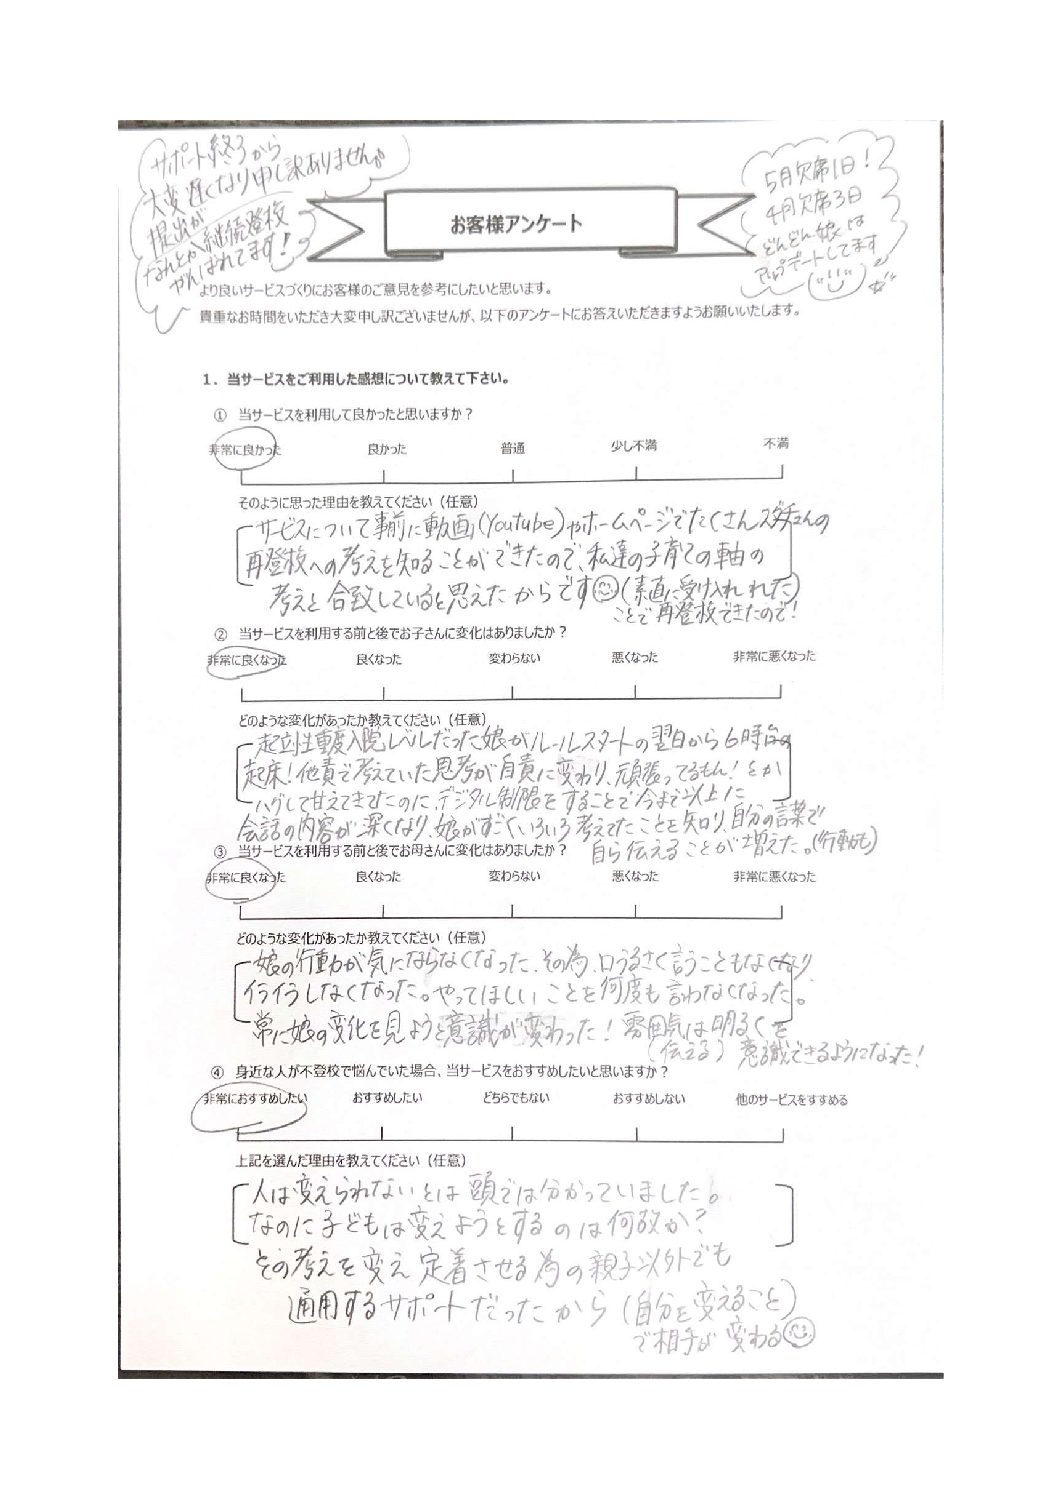 サポート終了から
大変遅くなり申し訳ありません
提出が
なんとか継続登校
がんばれてます!
5月欠席1日!
4月欠席3日
どんどん娘は
アップデートしてます
お客様アンケート
より良いサービスづくりにお客様のご意見を参考にしたいと思います。
貴重なお時間をいただき大変申し訳ございませんが、以下のアンケートにお答えいただきますようお願いいたします。
1. 当サービスをご利用した感想について教えて下さい。
① 当サービスを利用して良かったと思いますか?
非常に良かった 良かった 普通 少し不満 不満
そのように思った理由を教えてください(任意)
サービスについて事前に動画(Youtube)やホームページでたくさんスダチさんの
再登校への考えを知ることができたので、私達の子育ての軸の
考えと合致していると思えたからです(素直に受け入れれた)
ことで再登校できたので!
② 当サービスを利用する前と後でお子さんに変化はありましたか?
非常に良くなった 良くなった 変わらない 悪くなった 非常に悪くなった
どのような変化があったか教えてください(任意)
起立性重度入院レベルだった娘がルールスタートの翌日から6時台の
起床!他責で考えていた思考が自責に変わり、頑張ってるもん!とか
ハグして甘えてきてたのに、デジタル制限をすることで今まで以上に
会話の内容が深くなり、娘がすごくいろいろ考えてたことを知り、自分の言葉で
自ら伝えることが増えた。(行動も)
③ 当サービスを利用する前と後でお母さんに変化はありましたか?
非常に良くなった 良くなった 変わらない 悪くなった 非常に悪くなった
どのような変化があったか教えてください(任意)
娘の行動が気にならなくなった、その為、口うるさく言うこともなくなり
イライラしなくなった。やってほしいことを何度も言わなくなった。
常に娘の変化を見ようと意識が変わった!雰囲気は明るくを
(伝える) 意識できるようになった!
④ 身近な人が不登校で悩んでいた場合、当サービスをおすすめしたいと思いますか?
非常におすすめしたい おすすめしたい どちらでもない おすすめしない 他のサービスをすすめる
上記を選んだ理由を教えてください(任意)
人は変えられないとは頭では分かっていました。
なのに子どもは変えようとするのは何故か?
その考えを変え定着させる為の親子以外でも
通用するサポートだったから(自分を変えること)
で相手が変わる